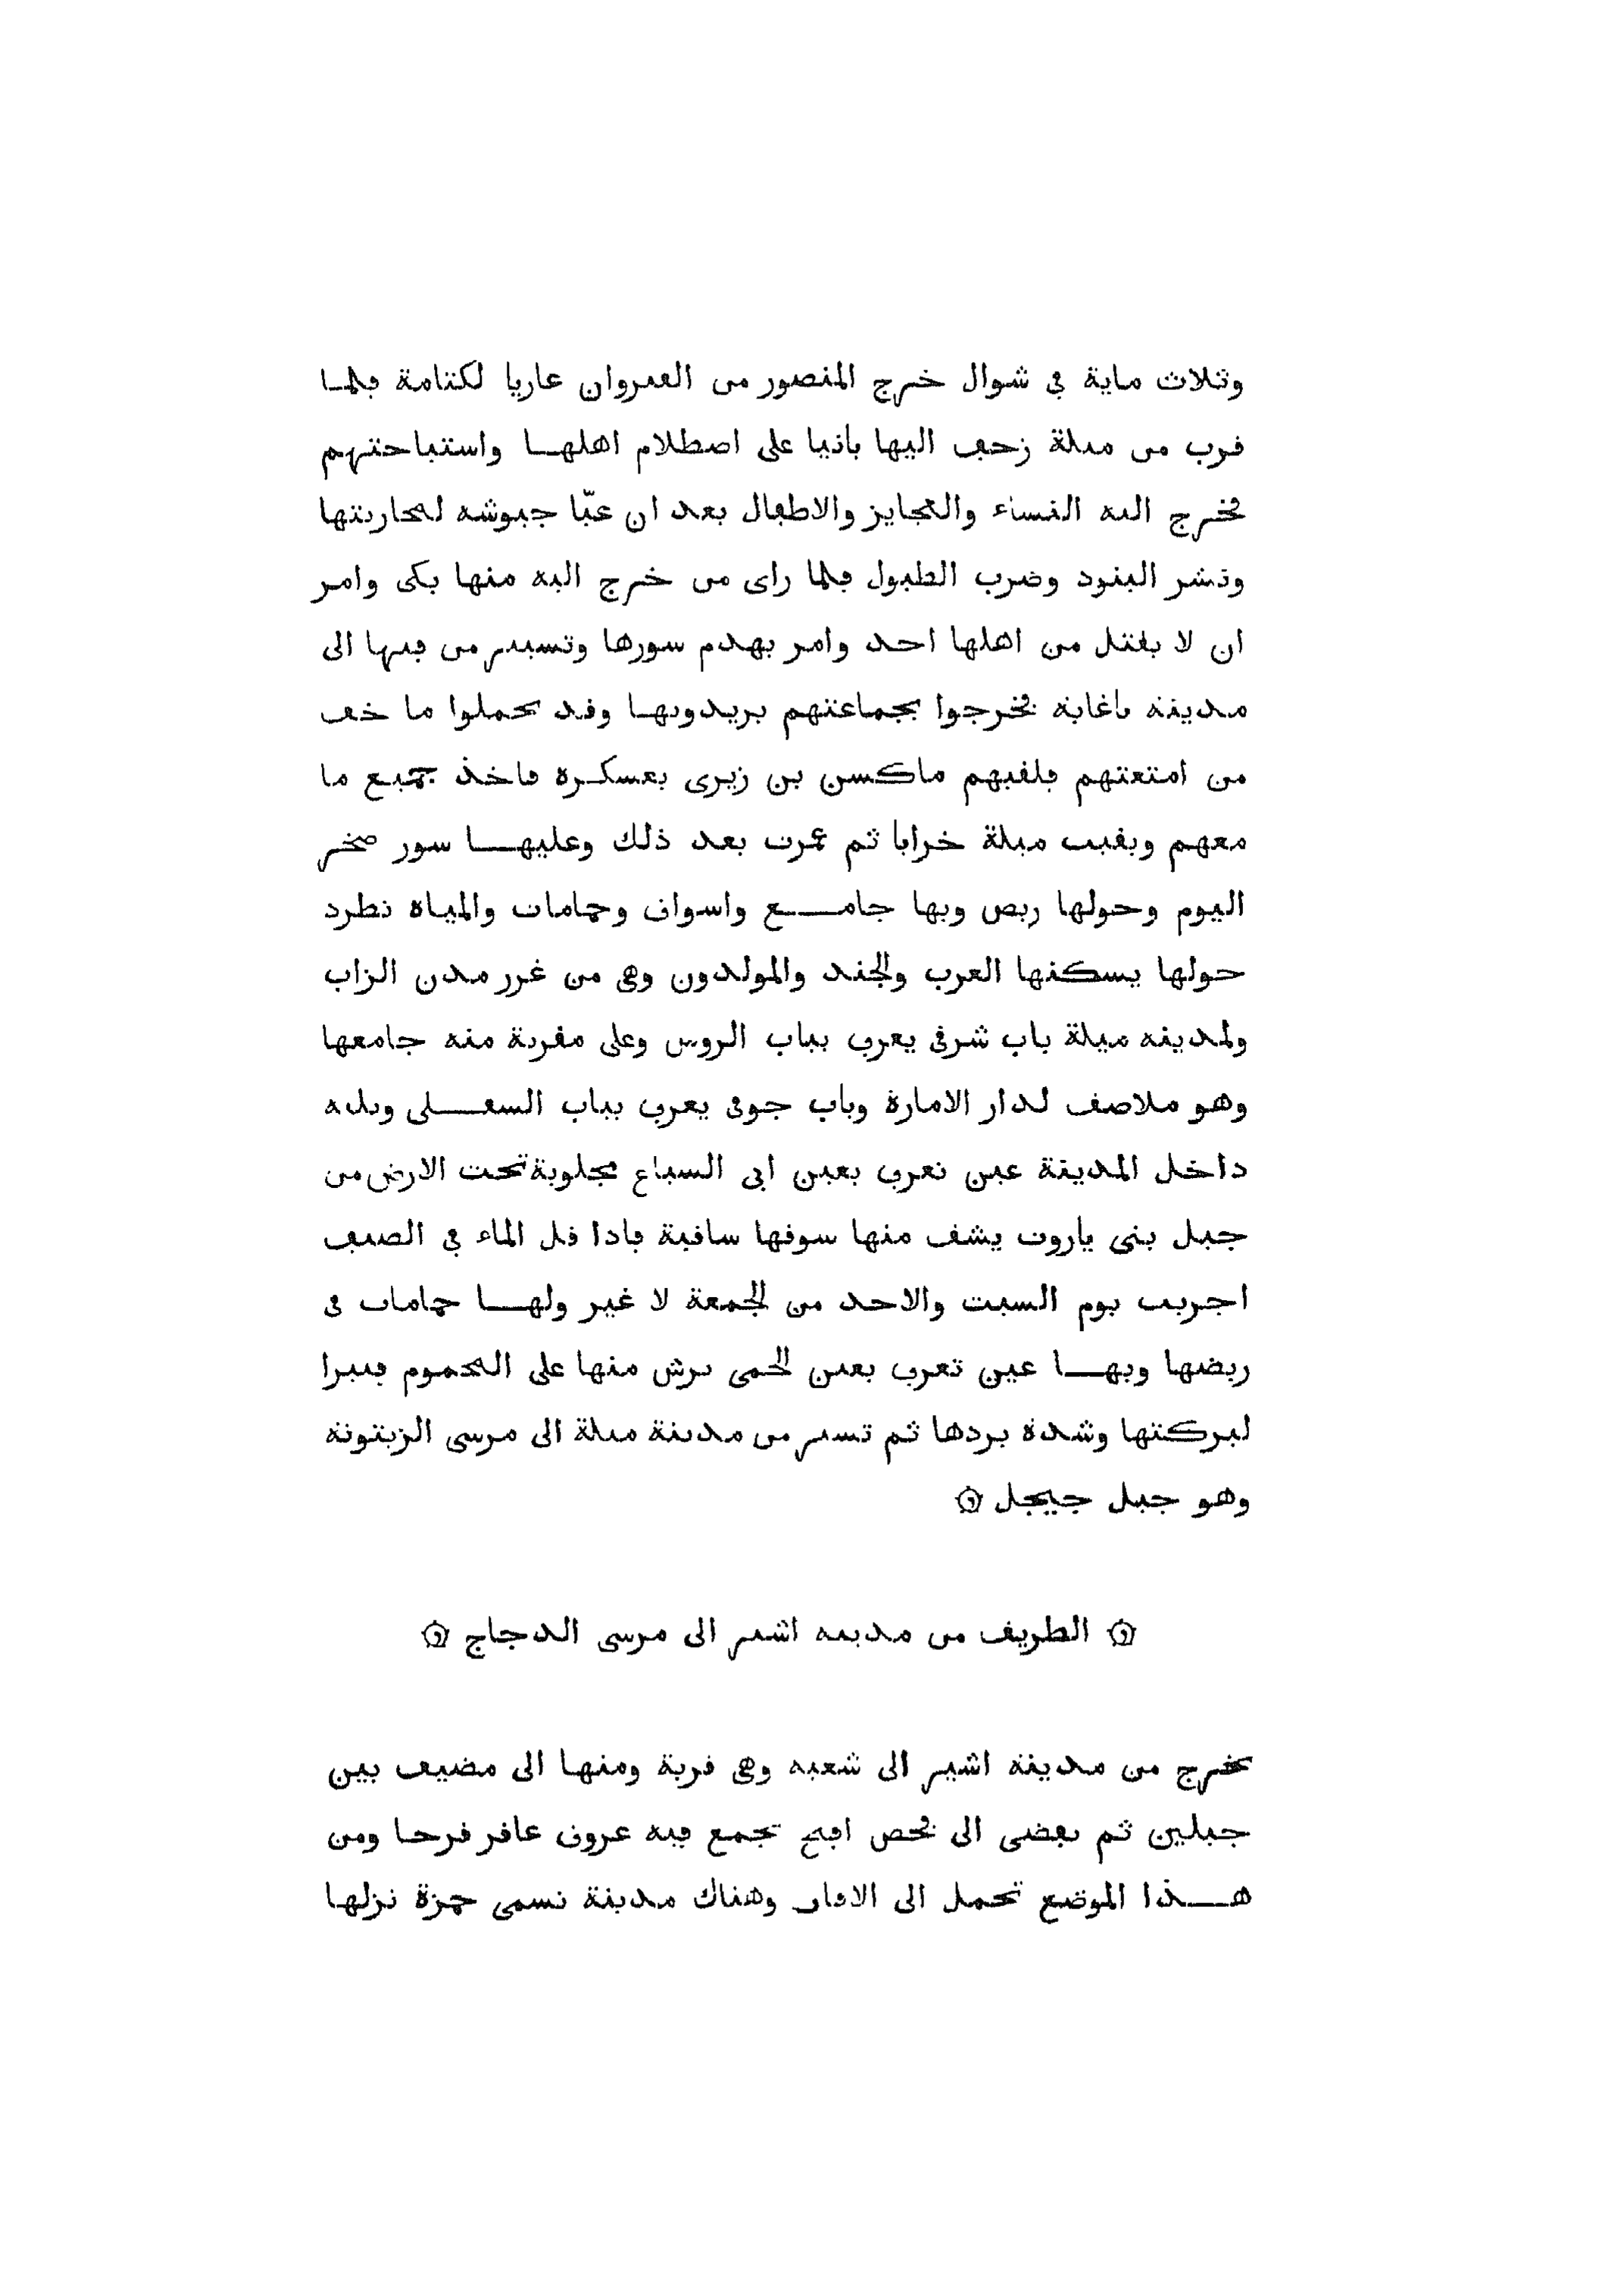 وثلاث ماية في شوال خرج المنصور من القيروان غازيا لكتامة فلما
قرب من ميلة زحف اليها بانيا على اصطلام اهلها واستباحتهم
فخرج اليه النساء والعجايز والاطفال بعد ان عبّا جيوشه لمحاربتها
ونشر البنود وضرب الطبول فلما راى من خرج اليه منها بكى وامر
ان لا يقتل من اهلها احد وامر بهدم سورها وتسيير من فيها الى
مدينة باغاية فخرجوا بجماعتهم يريدونها وقد تحملوا ما خف
من امتعتهم فلقيهم ماكسن بن زيرى بعسكره فاخذ جميع ما
معهم وبقيت ميلة خرابا ثم عمرت بعد ذلك وعليها سور صخر
اليوم وحولها ربض وبها جامع واسواق وحمامات والمياه تطرد
حولها يسكنها العرب والجند والمولدون وهى من غرر مدن الزاب
ولمدينة ميلة باب شرقى يعرف بباب الروس وعلى مقربة منه جامعها
وهو ملاصق لدار الامارة وباب جوفى يعرف بباب السفلى ويليه
داخل المدينة عين تعرف بعين ابى السباع مجلوبة تحت الارض من
جبل بنى ياروت يشق منها سوقها ساقية فاذا قل الماء في الصيف
اجريت يوم السبت والاحد من الجمعة لا غير ولها حمامات في
ربضها وبها عين تعرف بعين الحمى يرش منها على المحموم فيبرا
لبركتها وشدة بردها ثم تسير من مدينة ميلة الى مرسى الزيتونة
وهو جبل جيجل
الطريق من مدينة اشير الى مرسى الدجاج
تخرج من مدينة اشير الى شعبة وهى قرية ومنها الى مضيق بين
جبلين ثم يفضى الى فحص افيح تجمع فيه عروق عاقر قرحا ومن
هذا الموضع تحمل الى الافاق وهناك مدينة تسمى حمزة نزلها